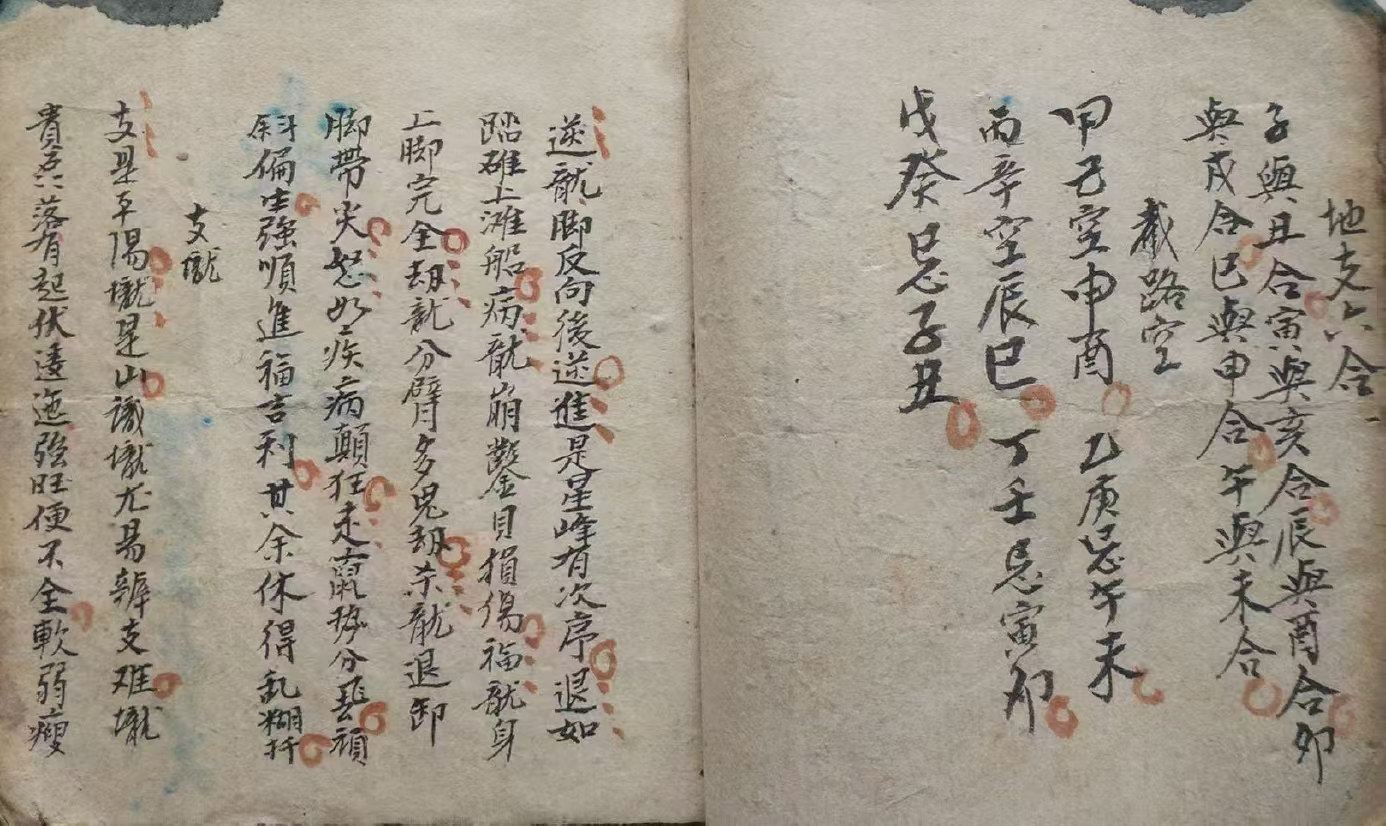 地支六合
子與丑合寅與亥合辰與酉合卯
與戌合巳與申合午與未合
截路空
甲己空申酉 乙庚忌午未
丙辛空辰巳 丁壬忌寅卯
戊癸忌子丑
逆龍脚反向後逆進是星峰有次序退如
踏碓上灘船病龍崩鑿金貝損傷福龍身
上脚完全劫龍分臂多鬼劫杀龍退卸
脚帶尖怒如疾病顛狂走竄勢分頑
斜偏生強順進福吉利其余休得乱糊扦
支壠
支是平陽壠是山識壠尤易辨支难壠
貴落有起伏逶迤強旺便不全軟弱瘦